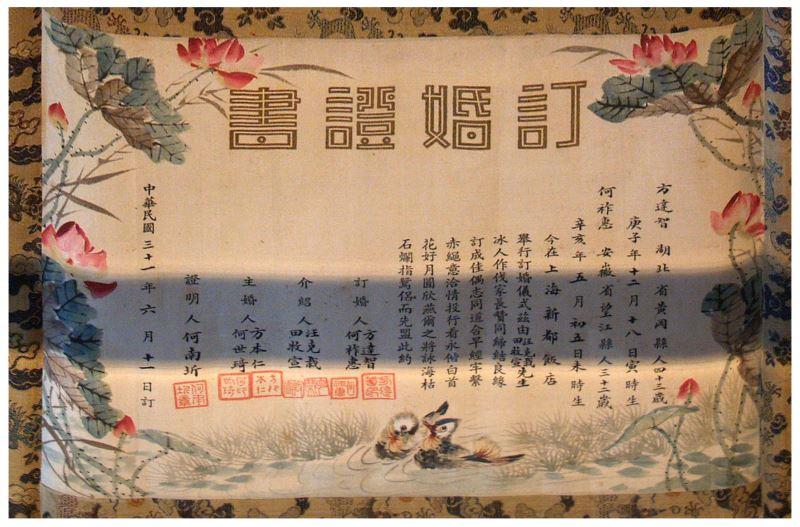 訂婚證書
方達智 湖北省黃岡縣人四十三歲
庚子年十二月十八日寅時生
何祚惠 安徽省望江縣人三十二歲
辛亥年五月初五日未時生
今在上海新都飯店
舉行訂婚儀式茲由汪克哉田收宣先生
冰人作伐家長贊同締結良緣
訂成佳偶志同道合早經牢繫
赤繩意洽情投行看永偕白首
花好月圓欣燕爾之將詠海枯
石爛指鴛侶而先盟此約
訂婚人 方達智 何祚惠
介紹人 汪克哉 田收宣
主婚人 方本仁 何世琦
證明人 何南圻
中華民國三十一年六月十一日訂